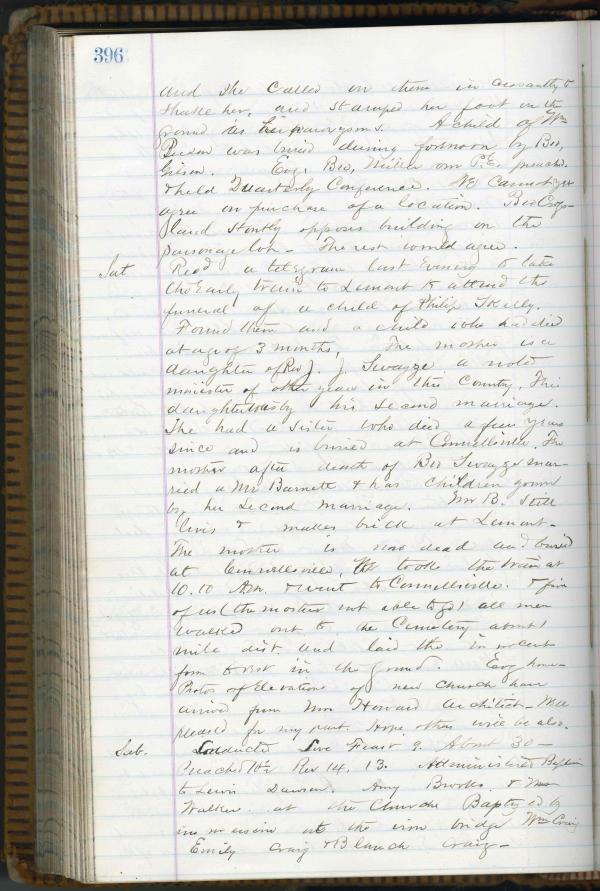 396
and she called on them incessantly to
shake her, and stamped her foot on the
ground as her paroxysms. A child of Wm
Pierson was buried during forenoon by Bro,
Gilson. Eve Bro, Miller our P.E. preachd.
& held Quarterly Conference. We cannot yet
agree on purchase of a location. Bro
land stoutly opposes building on the
parsonage lot - The rest would agree.
Sat. Recd a telegram last Evening to take
the Early train to Lemont to attend the
funeral of a child of Philip Skelly.
Found them and a child who had died
at age of 3 months. The mother is a
daughter of Rev J. J. Swayze a noted
minister of other years in this County. This
daughter was by his second marriage.
She had a sister who died a few years
since and is buried at Connellsville. The
mother after death of Bro Swayze mar-
ried a Mr Barnett & has children grown
by her second marriage. Mr B. still
lives & makes brick at Lemont -
The mother is now dead and buried
at Connellsville. We took the train at
10.10 Am. & went to Connellsville. & five
of us (the mother not able to go) all men
walked out to the Cemetery about 1
mile dist and laid the innocent
form to rest in the ground. Eve home
Photos of Elevations of new church have
arrived from Mr Howard architect - Well
pleased for my part. Hope others will be also.
Sab. Conducted Love Feast 9. About 30 -
Preached 10½ Rev 14. 13. Administered Baptism
to Lewis Dawson. Amy Brooks. & Mrs
Walker. at the Church Baptized by
immersion at the iron bridge Wm Craig
Emily Craig & Blanch Craig -